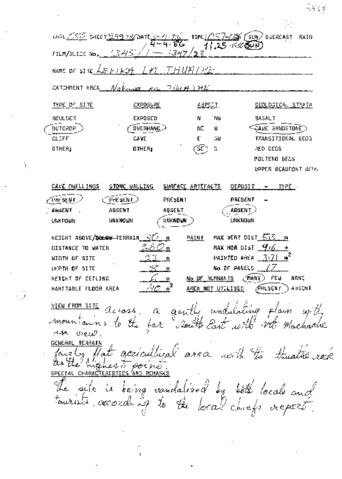 FILM/SLIDE No. 1345/1 - 1347/23
NAME OF SITE
CATCHMENT AREA
TYPE OF SITE EXPOSURE ASPECT GEOLOGICAL STRATA
BOULDER EXPOSED N NW BASALT
OUTCROP OVERHANG NE W CAVE SANDSTONE
CLIFF CAVE E SW TRANSITIONAL BEDS
OTHER; OTHER; SE S RED BEDS
MOLTENO BEDS
UPPER BEAUFORT BEDS
CAVE DWELLINGS STONE WALLING SURFACE ARTEFACTS DEPOSIT - TYPE
PRESENT PRESENT PRESENT PRESENT -
ABSENT ABSENT ABSENT ABSENT
UNKNOWN UNKNOWN UNKNOWN UNKNOWN
HEIGHT ABOVE/BELOW TERRAIN m PAINT MAX VERT DIST m
DISTANCE TO WATER m MAX HOR DIST 9.6 m
WIDTH OF SITE m PAINTED AREA 3.71 m²
DEPTH OF SITE m No OF PANELS 17
HEIGHT OF CEILING m No OF HUMANS MANY FEW NONE
HABITABLE FLOOR AREA m² AREA NOT UTILISED PRESENT ABSENT
VIEW FROM SITE
Across a gently undulating plain with
mountains to the far South East with
in view.
GENERAL TERRAIN
fairly flat agricultural area with the rock
as the highest point.
SPECIAL CHARACTERISTICS AND REMARKS
The site is being vandalised by both locals and
tourists according to the local chiefs report.